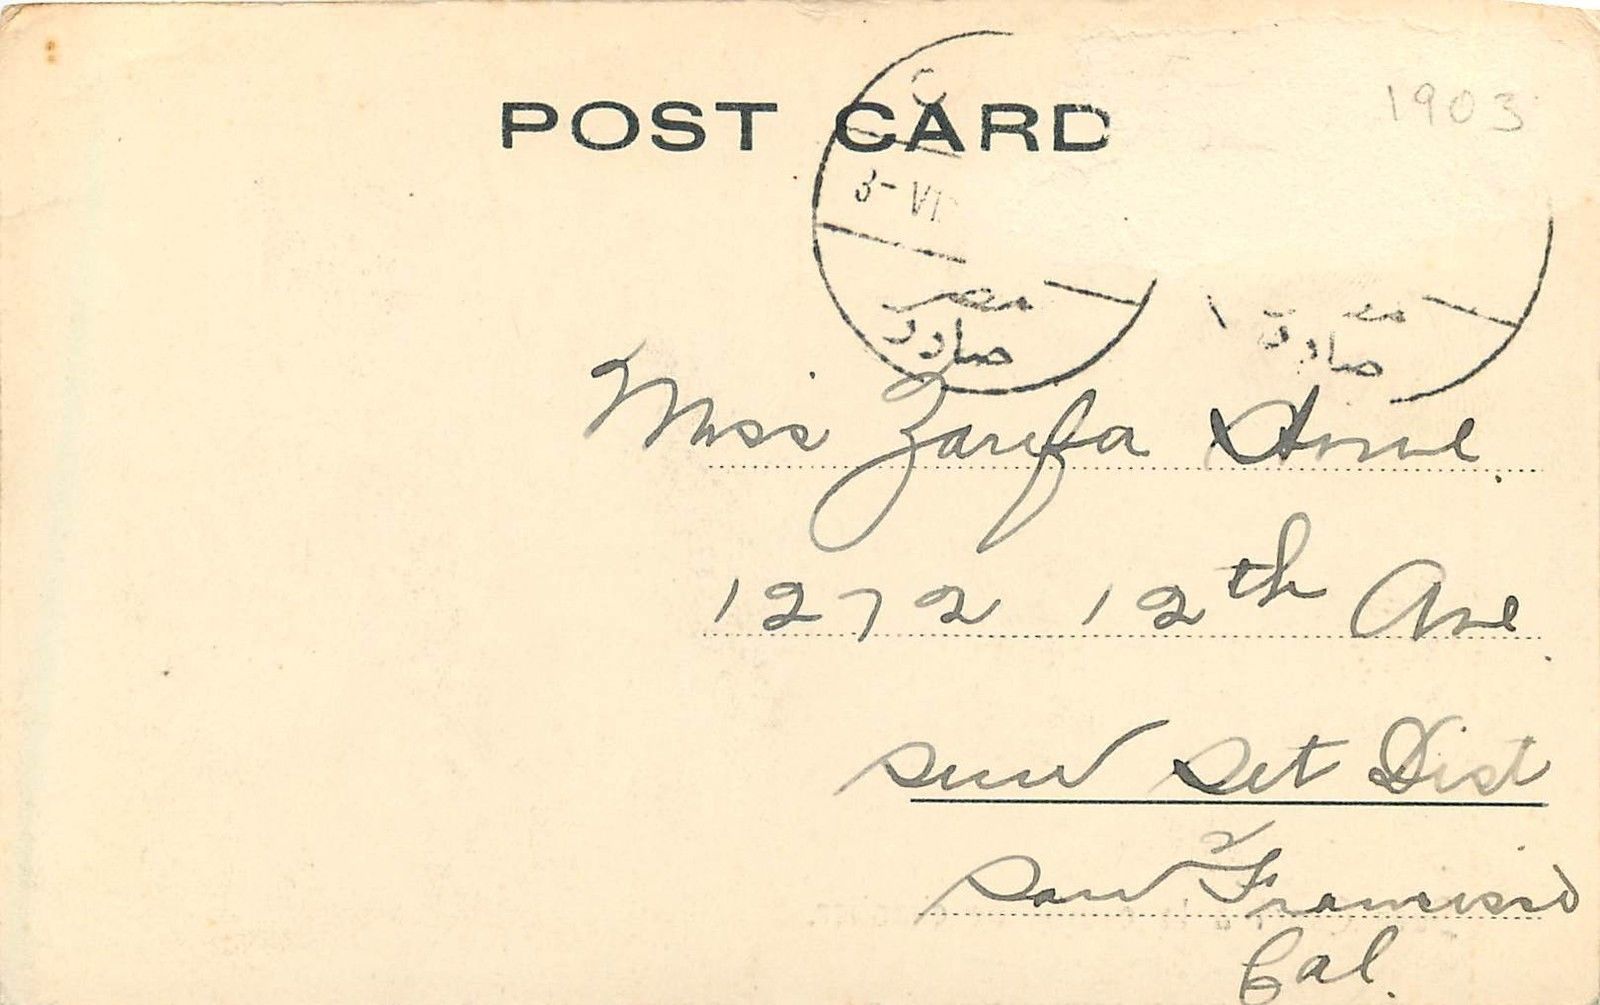 POST CARD
1903
C
3-VI
مصر
صادر
مصر
صادر
Miss Zarifa
1272 12th Ave
Sun Set Dist
San Francisco
Cal.